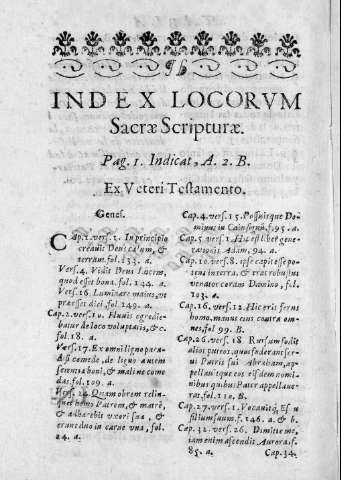 INDEX LOCORVM
Sacræ Scripturæ.
Pag. 1. Indicat, A. 2. B.
Ex Veteri Testamento.
Genes.
Cap. 1. vers. 1. In principio
creauit Deus cælum, &
terram. fol. 133. a.
Vers. 4. Vidit Deus lucem,
quod esset bona. fol. 134. a.
Vers. 16. Luminare maius, vt
præesset diei. fol. 149. a.
Cap. 2. vers. 10. Fluuius egredie-
batur de loco voluptatis, &c.
fol. 18. a.
Vers. 17. Ex omni ligno para-
disi comede, de ligno autem
scientiæ boni, & mali ne come
das. fol. 109. a.
Vers. 24. Quam obrem relin-
quet homo Patrem, & matrē,
& adhærebit vxori suæ, &
erunt duo in carne vna, fol.
24. a.
Cap. 4. vers. 15. Posuitque Do-
minus in Cain signū, f. 95. a.
Cap. 5. vers. 1. Hic est liber gene-
rationis Adam, 94. a.
Cap. 10. vers. 8. ipse cœpit esse po-
tens in terra, & erat robustus
venator coram Domino, fol.
103. a.
Cap. 16. vers. 12. Hic erit ferus
homo, manus eius contra om-
nes, fol. 99. B.
Cap. 26. vers. 18. Rursum fodit
alios puteos, quos foderant ser-
ui Patris sui Abraham, ap-
pellauitque eos eisdem nomi-
nibus quibus Pater appellaue-
rat. fol. 110. B.
Cap. 27. vers. 1. Vocauitq́; Esau
filium suum. f. 146. a. & b.
Cap. 32. vers. 26. Dimitte me,
iam enim ascendit Aurora. f.
85. a.
Cap. 34.